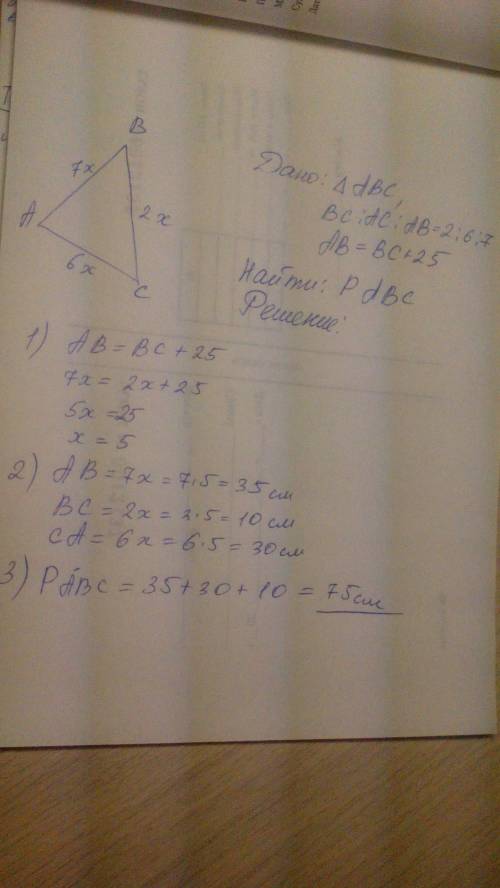 B
7x
A
2x
6x
C
Дано: △ABC,
BC:AC:AB=2:6:7
AB=BC+25
Найти: P ABC
Решение:
1) AB=BC+25
7x=2x+25
5x=25
x=5
2) AB=7x=7·5=35см
BC=2x=2·5=10см
CA=6x=6·5=30см
3) P ABC=35+30+10=75см